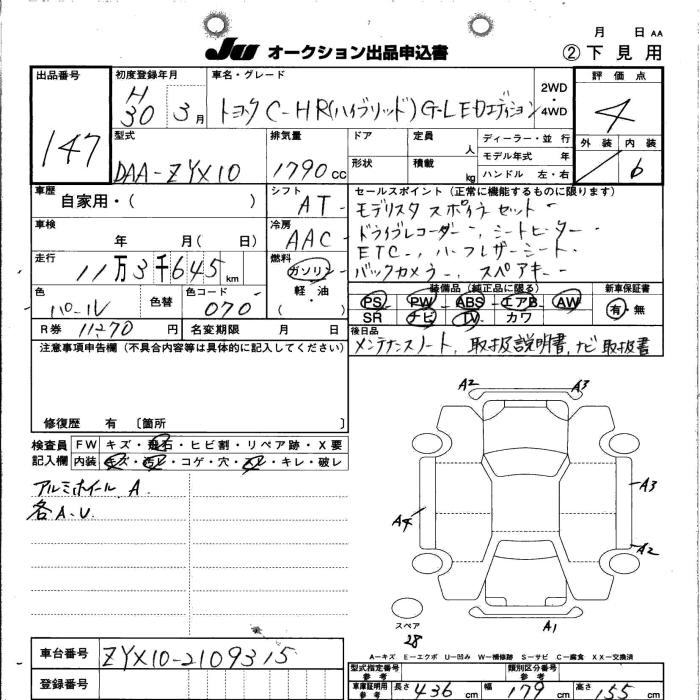 月 日 AA
JU オークション出品申込書 ② 下見用
出品番号 初度登録年月 車名・グレード 評価点
147 H30 3月 トヨタ C-HR(ハイブリッド) G-LEDエディション 2WD・4WD 4
型式 排気量 ドア 定員 人 ディーラー・並行 外装 内装
DAA-ZYX10 1790cc 形状 積載 kg モデル年式 年 ハンドル 左・右 b
車歴 自家用・( ) シフト AT セールスポイント(正常に機能するものに限ります)
モデリスタ スポイラーセット
車検 年 月( 日) 冷房 AAC ドライブレコーダー、シートヒーター
ETC、ハーフレザーシート
走行 11万3千645km 燃料 ガソリン 軽・油 ( ) バックカメラ、スペアキー
色 パール 色替 色コード 070
装備品(純正品に限る) 新車保証書
PS PW ABS エアB AW 有・無
SR ナビ TV カワ
R券 11270円 名変期限 月 日
後日品
メンテナンスノート、取扱説明書、ナビ取扱書
注意事項申告欄(不具合内容等は具体的に記入してください)
修復歴 有 〔箇所 〕
検査員記入欄 FW キズ・飛石・ヒビ割・リペア跡・X要
内装 キズ・汚レ・コゲ・穴・スレ・キレ・破レ
アルミホイール A
各A.U
A2 A3
A3
A4
A2
A1
スペア
28
A-キズ E-エクボ U-凹み W-補修跡 S-サビ C-腐食 XX-交換済
車台番号 ZYX10-2109315
登録番号
型式指定番号 参考 類別区分番号 参考
車庫証明用 参考 長さ 436cm 幅 179cm 高さ 155cm